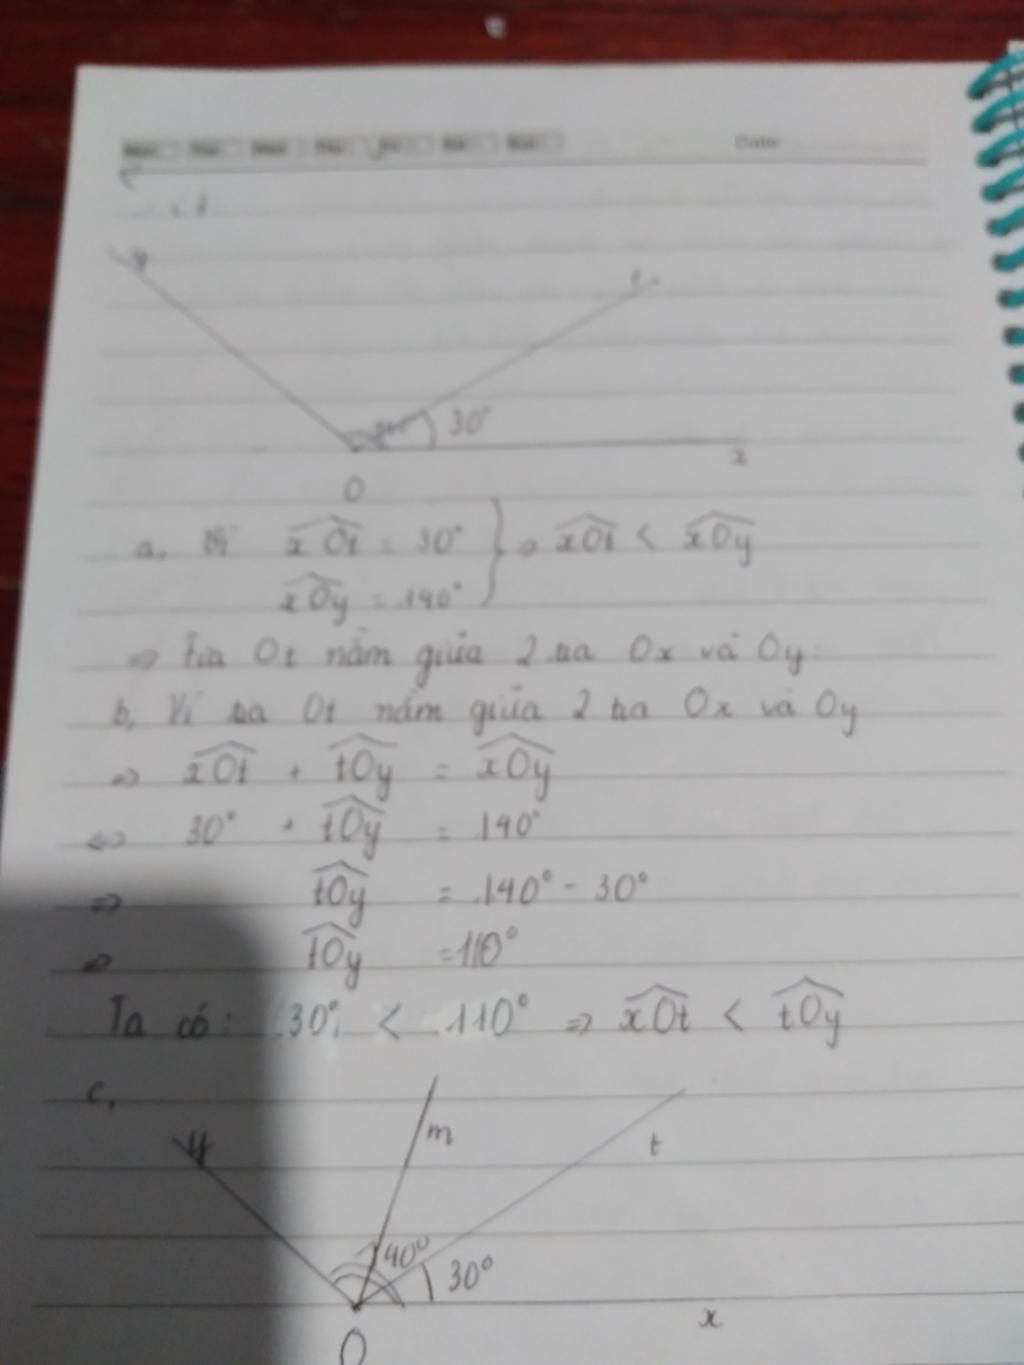 Date
y
t
30°
x
O
a, Vì xOt = 30° } ⇒ xOt < xOy
xOy = 140°
⇒ Tia Ot nằm giữa 2 tia Ox và Oy
b, Vì tia Ot nằm giữa 2 tia Ox và Oy
⇒ xOt + tOy = xOy
⇔ 30° + tOy = 140°
⇒ tOy = 140° - 30°
⇒ tOy = 110°
Ta có: 30° < 110° ⇒ xOt < tOy
c,
m
y
t
40°
30°
x
O